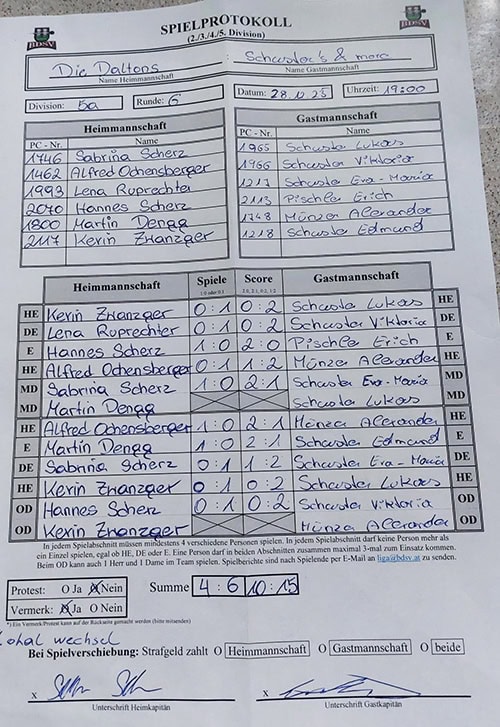 BDSV SPIELPROTOKOLL BDSV
(2./3./4./5. Division)
Die Daltons : Schuster's & more
Name Heimmannschaft Name Gastmannschaft
Division: 5a Runde: 6 Datum: 28.10.25 Uhrzeit: 19:00
Heimmannschaft Gastmannschaft
PC - Nr. Name PC - Nr. Name
1746 Sabrina Scherz 1965 Schuster Lukas
1462 Alfred Ochensberger 1966 Schuster Viktoria
1993 Lena Ruprechter 1217 Schuster Eva-Maria
2070 Hannes Scherz 2113 Pischler Erich
1800 Martin Dengg 1748 Münzer Alexander
2117 Kevin Znanzger 1218 Schuster Edmund
Heimmannschaft Spiele Score Gastmannschaft
1:0 oder 0:1 2:0, 2:1, 0:2, 1:2
HE Kevin Znanzger 0:1 0:2 Schuster Lukas HE
DE Lena Ruprechter 0:1 0:2 Schuster Viktoria DE
E Hannes Scherz 1:0 2:0 Pischler Erich E
HE Alfred Ochensberger 0:1 1:2 Münzer Alexander HE
MD Sabrina Scherz 1:0 2:1 Schuster Eva-Maria MD
MD Martin Dengg Schuster Lukas MD
HE Alfred Ochensberger 1:0 2:1 Münzer Alexander HE
E Martin Dengg 1:0 2:1 Schuster Edmund E
DE Sabrina Scherz 0:1 1:2 Schuster Eva-Maria DE
HE Kevin Znanzger 0:1 0:2 Schuster Lukas HE
OD Hannes Scherz 0:1 0:2 Schuster Viktoria OD
OD Kevin Znanzger Münzer Alexander OD
In jedem Spielabschnitt müssen mindestens 4 verschiedene Personen spielen. In jedem Spielabschnitt darf keine Person mehr als
ein Einzel spielen, egal ob HE, DE oder E. Eine Person darf in beiden Abschnitten zusammen maximal 3-mal zum Einsatz kommen.
Beim OD kann auch 1 Herr und 1 Dame im Team spielen. Spielberichte sind nach Spielende per E-Mail an liga@bdsv.at zu senden.
Protest: O Ja O Nein Summe 4:6 10:15
Vermerk: O Ja O Nein
*) Ein Vermerk/Protest kann auf der Rückseite gemacht werden (bitte mitsenden)
Lokal wechsel
Bei Spielverschiebung: Strafgeld zahlt O Heimmannschaft O Gastmannschaft O beide
x x
Unterschrift Heimkapitän Unterschrift Gastkapitän